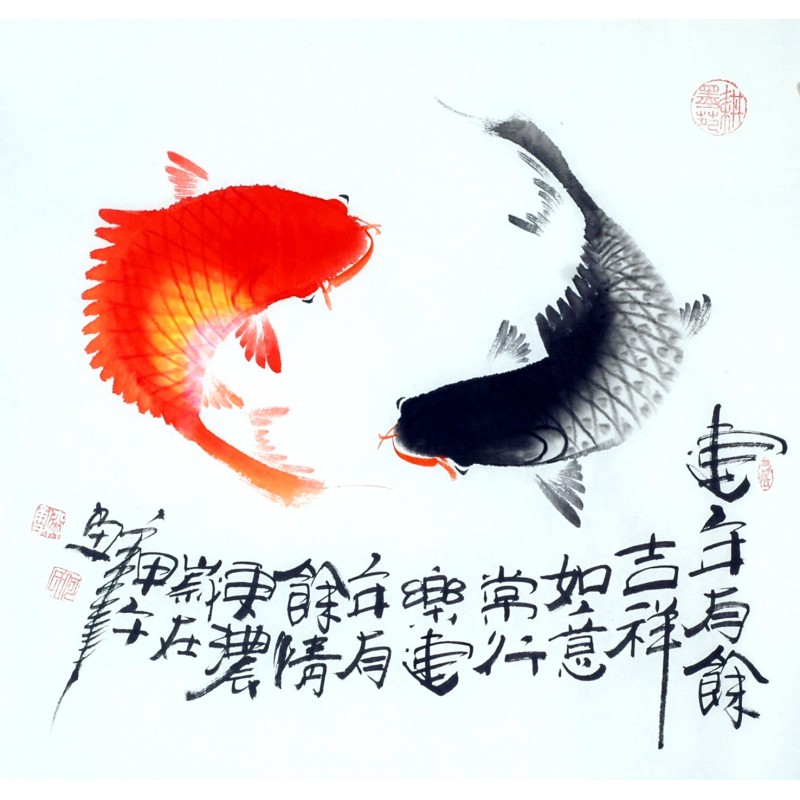 耕墨苑
連年有餘
吉祥
如意
常行
樂連
年有
餘情
更濃
歲在
甲午